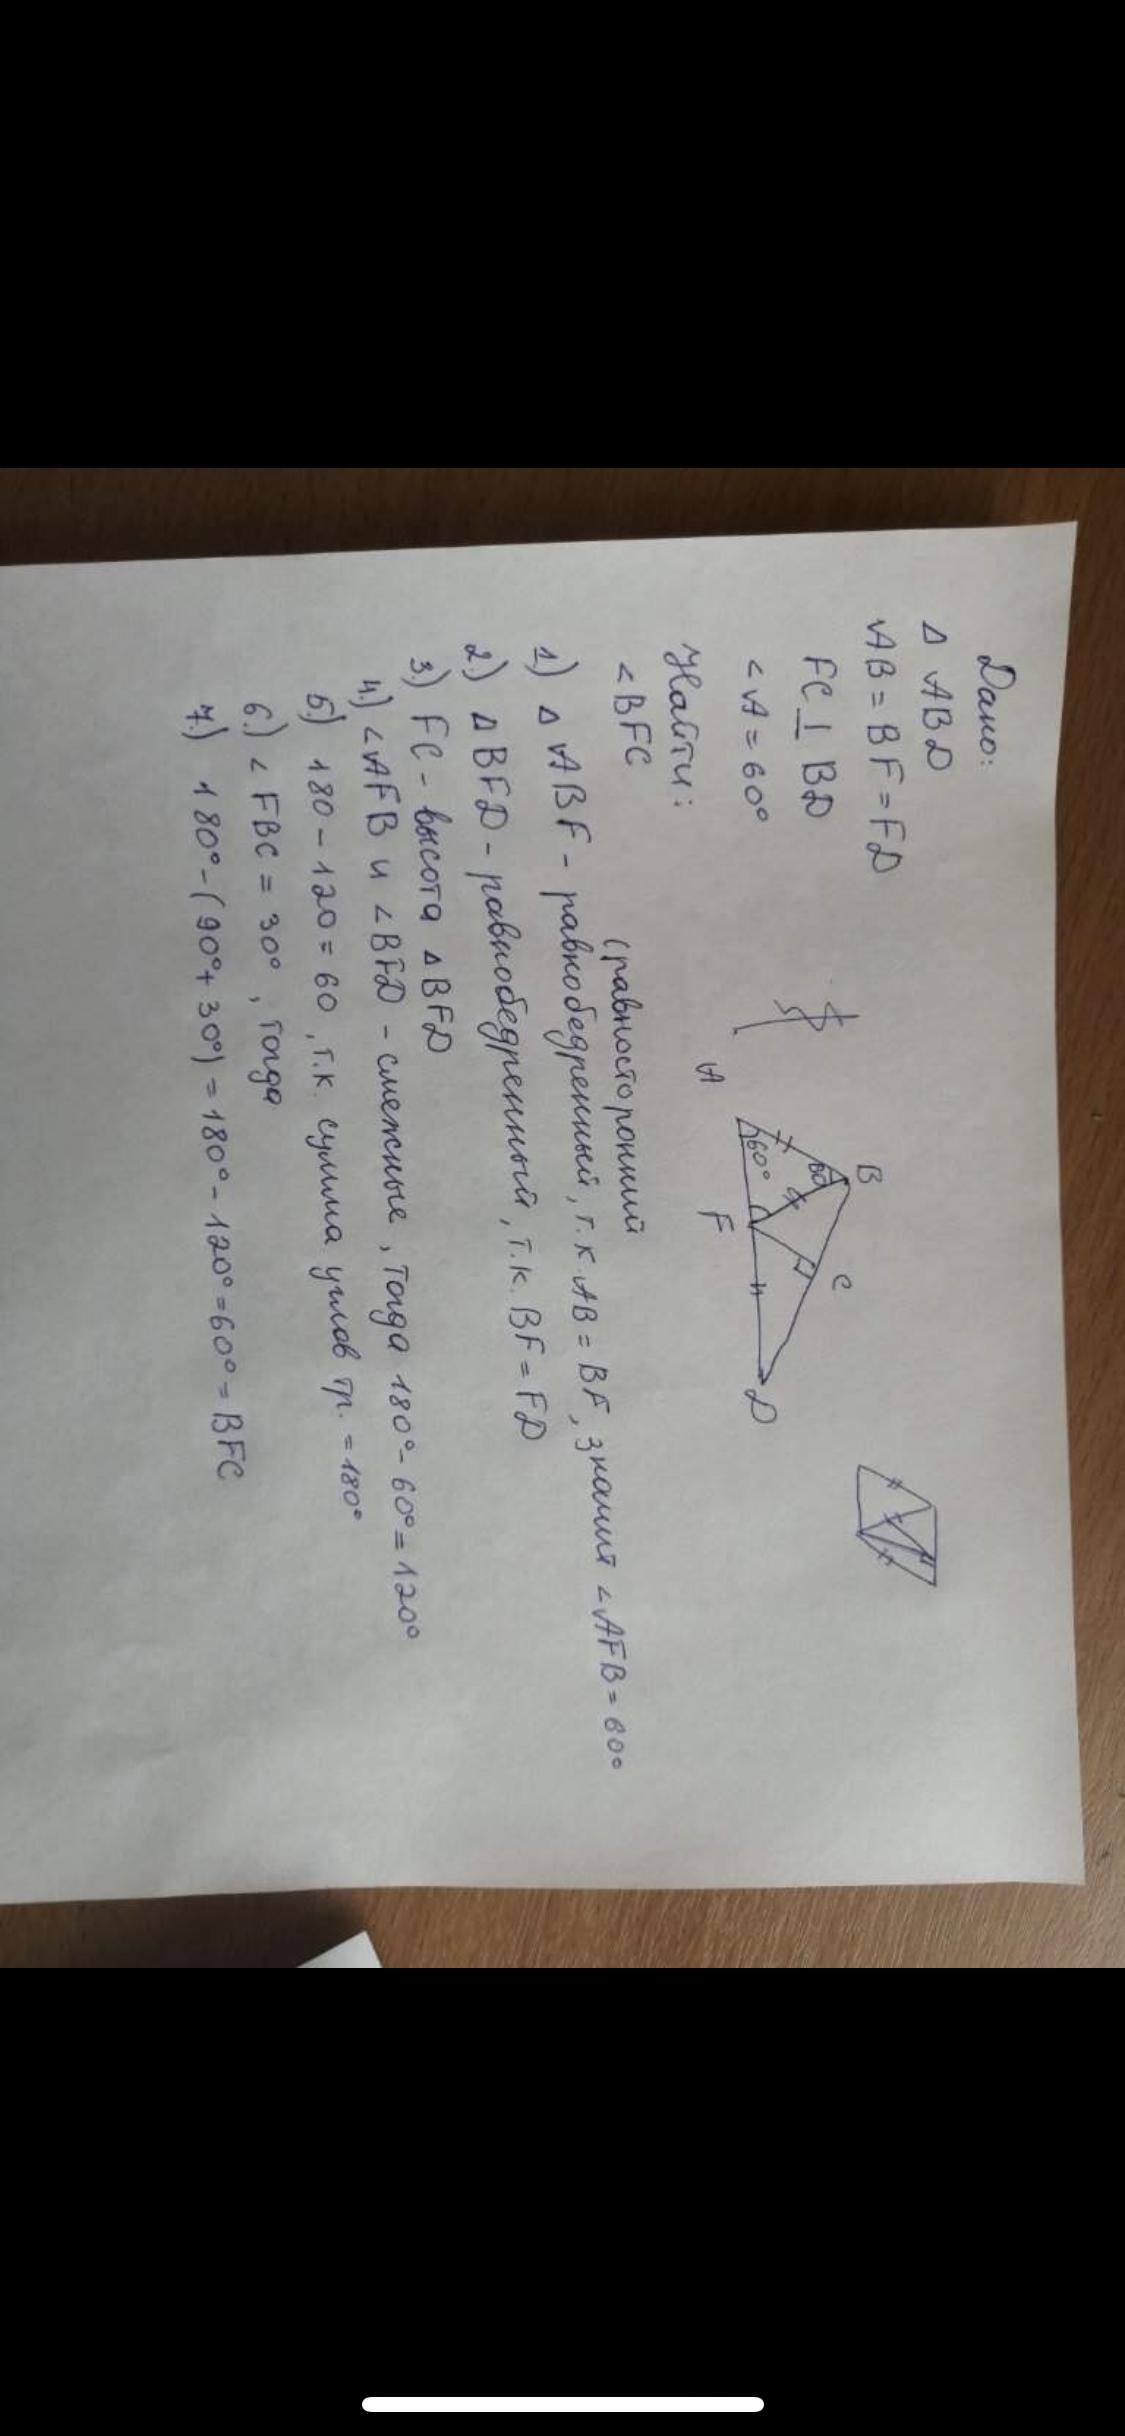 Дано:
Δ ABD
AB = BF = FD
FC ⊥ BD
∠A = 60°
Найти:
∠BFC
B
C
60°
60°
A
F
D
(равносторонний
1) Δ ABF - равнобедренный, т.к AB = BF, значит ∠AFB = 60°
2.) Δ BFD - равнобедренный, т.к. BF = FD
3.) FC - высота Δ BFD
4.) ∠AFB и ∠BFD - смежные, тогда 180° - 60° = 120°
5.) 180 - 120 = 60, т.к. сумма углов тр. = 180°
6.) ∠ FBC = 30°, тогда
7.) 180° - (90° + 30°) = 180° - 120° = 60° = BFC